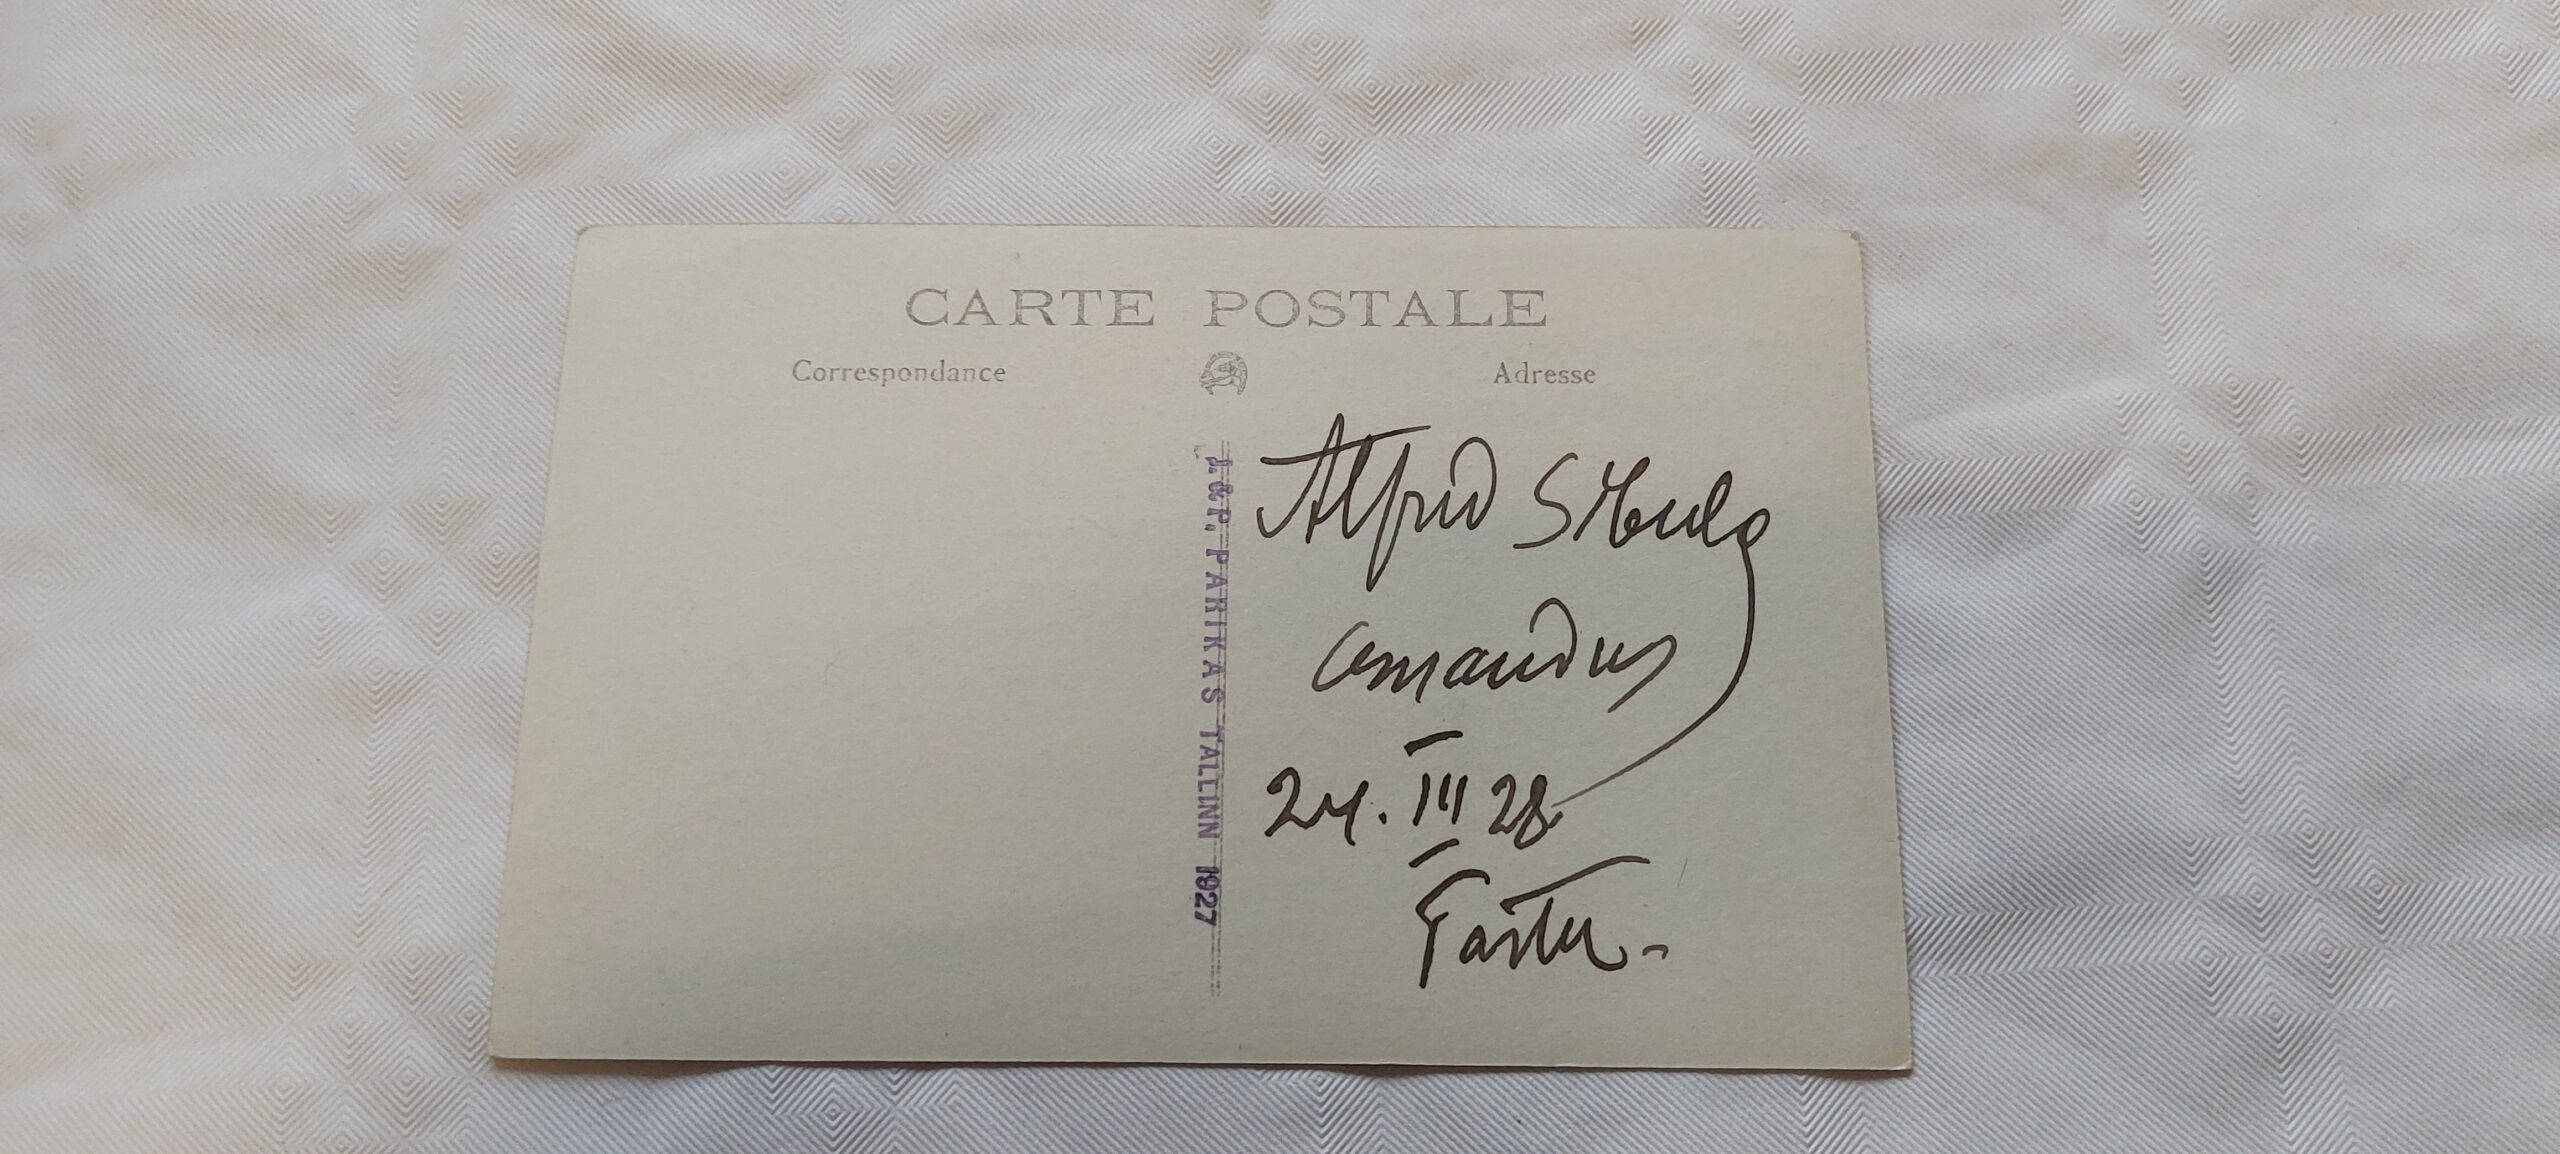 CARTE POSTALE
Correspondance
Adresse
J. & P. PARIKAS TALLINN 1927
Alfred
24. III 28
Tartu.